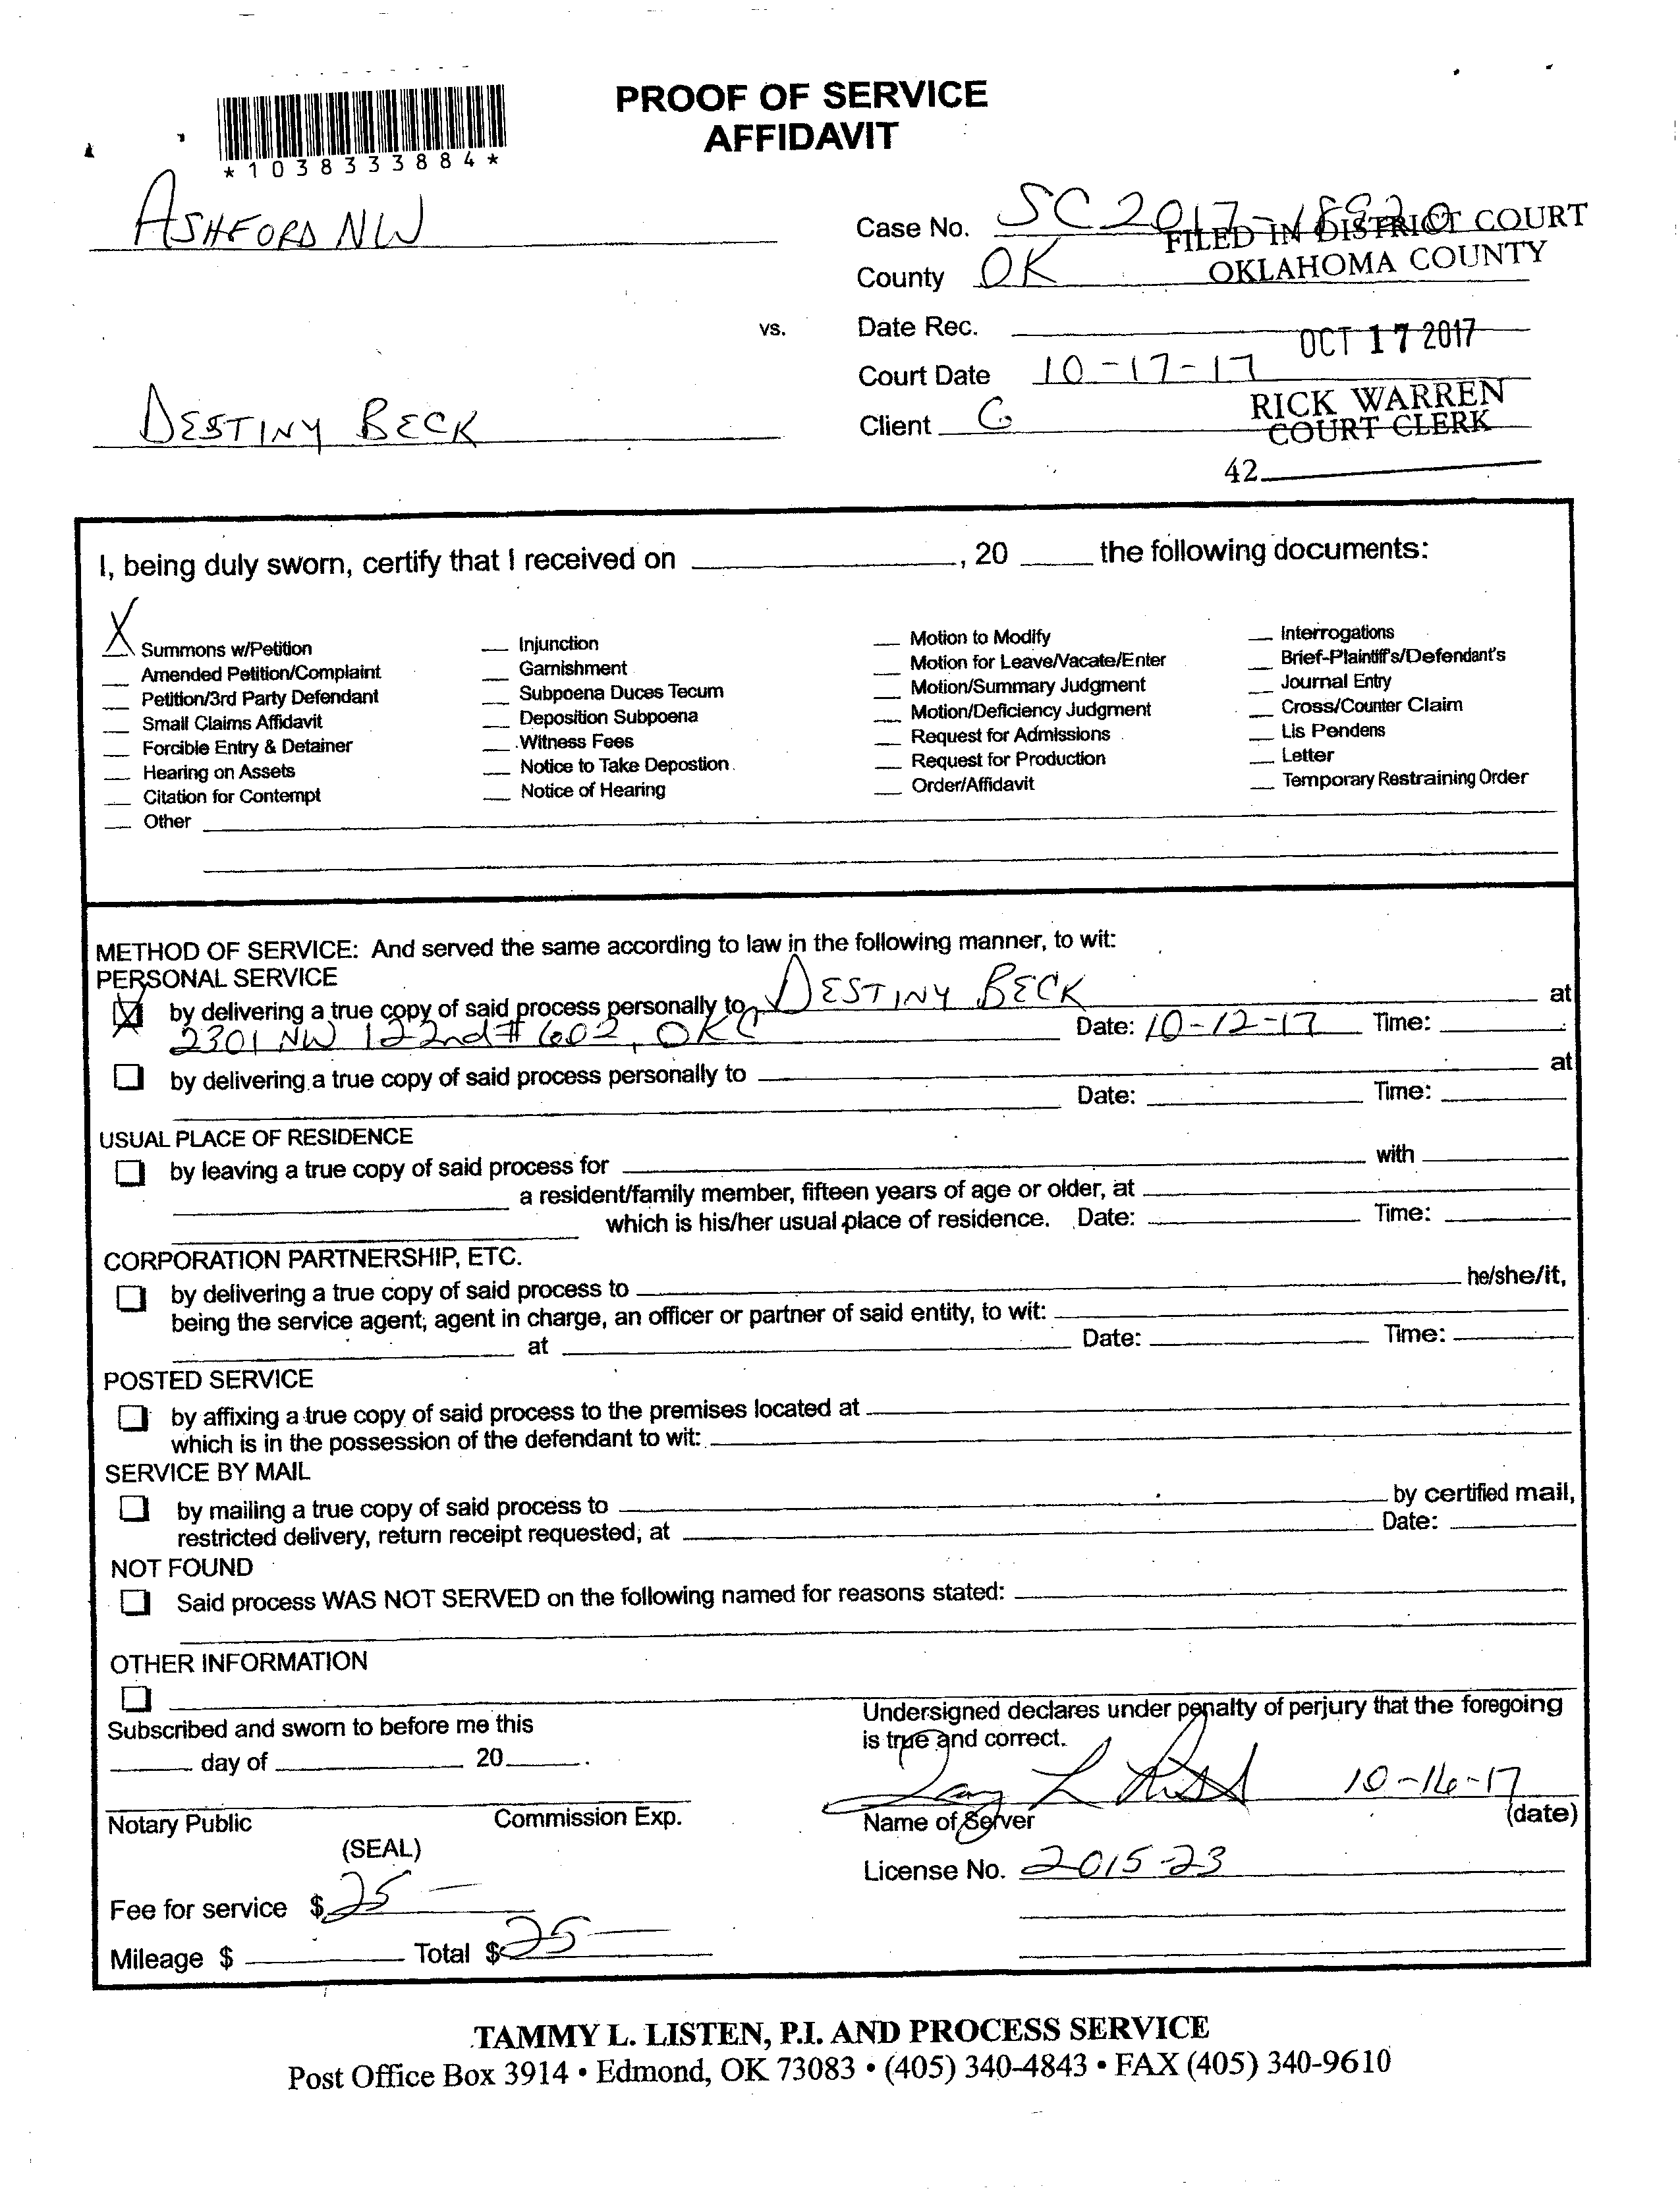 PROOF OF SERVICE
AFFIDAVIT
*1038333884*
ASHFORD NW
Case No. SC 2017-18920
FILED IN DISTRICT COURT
OKLAHOMA COUNTY
County OK
vs.
Date Rec.
OCT 17 2017
Court Date 10-17-17
DESTINY BECK
Client G
RICK WARREN
COURT CLERK
42
I, being duly sworn, certify that I received on , 20 the following documents:
X Summons w/Petition
Amended Petition/Complaint
Petition/3rd Party Defendant
Small Claims Affidavit
Forcible Entry & Detainer
Hearing on Assets
Citation for Contempt
Other
Injunction
Garnishment
Subpoena Duces Tecum
Deposition Subpoena
Witness Fees
Notice to Take Depostion
Notice of Hearing
Motion to Modify
Motion for Leave/Vacate/Enter
Motion/Summary Judgment
Motion/Deficiency Judgment
Request for Admissions
Request for Production
Order/Affidavit
Interrogations
Brief-Plaintiff's/Defendant's
Journal Entry
Cross/Counter Claim
Lis Pendens
Letter
Temporary Restraining Order
METHOD OF SERVICE: And served the same according to law in the following manner, to wit:
PERSONAL SERVICE
X by delivering a true copy of said process personally to DESTINY BECK at
2301 NW 122nd # 602, OKC Date: 10-12-17 Time:
by delivering a true copy of said process personally to at
Date: Time:
USUAL PLACE OF RESIDENCE
by leaving a true copy of said process for with
a resident/family member, fifteen years of age or older, at
which is his/her usual place of residence. Date: Time:
CORPORATION PARTNERSHIP, ETC.
by delivering a true copy of said process to he/she/it,
being the service agent, agent in charge, an officer or partner of said entity, to wit:
at Date: Time:
POSTED SERVICE
by affixing a true copy of said process to the premises located at
which is in the possession of the defendant to wit:
SERVICE BY MAIL
by mailing a true copy of said process to by certified mail,
restricted delivery, return receipt requested, at Date:
NOT FOUND
Said process WAS NOT SERVED on the following named for reasons stated:
OTHER INFORMATION
Subscribed and sworn to before me this
day of 20 .
Notary Public Commission Exp.
(SEAL)
Fee for service $ 25 —
Mileage $ Total $ 25 —
Undersigned declares under penalty of perjury that the foregoing
is true and correct.
10-16-17
Name of Server (date)
License No. 2015-23
TAMMY L. LISTEN, P.I. AND PROCESS SERVICE
Post Office Box 3914 • Edmond, OK 73083 • (405) 340-4843 • FAX (405) 340-9610